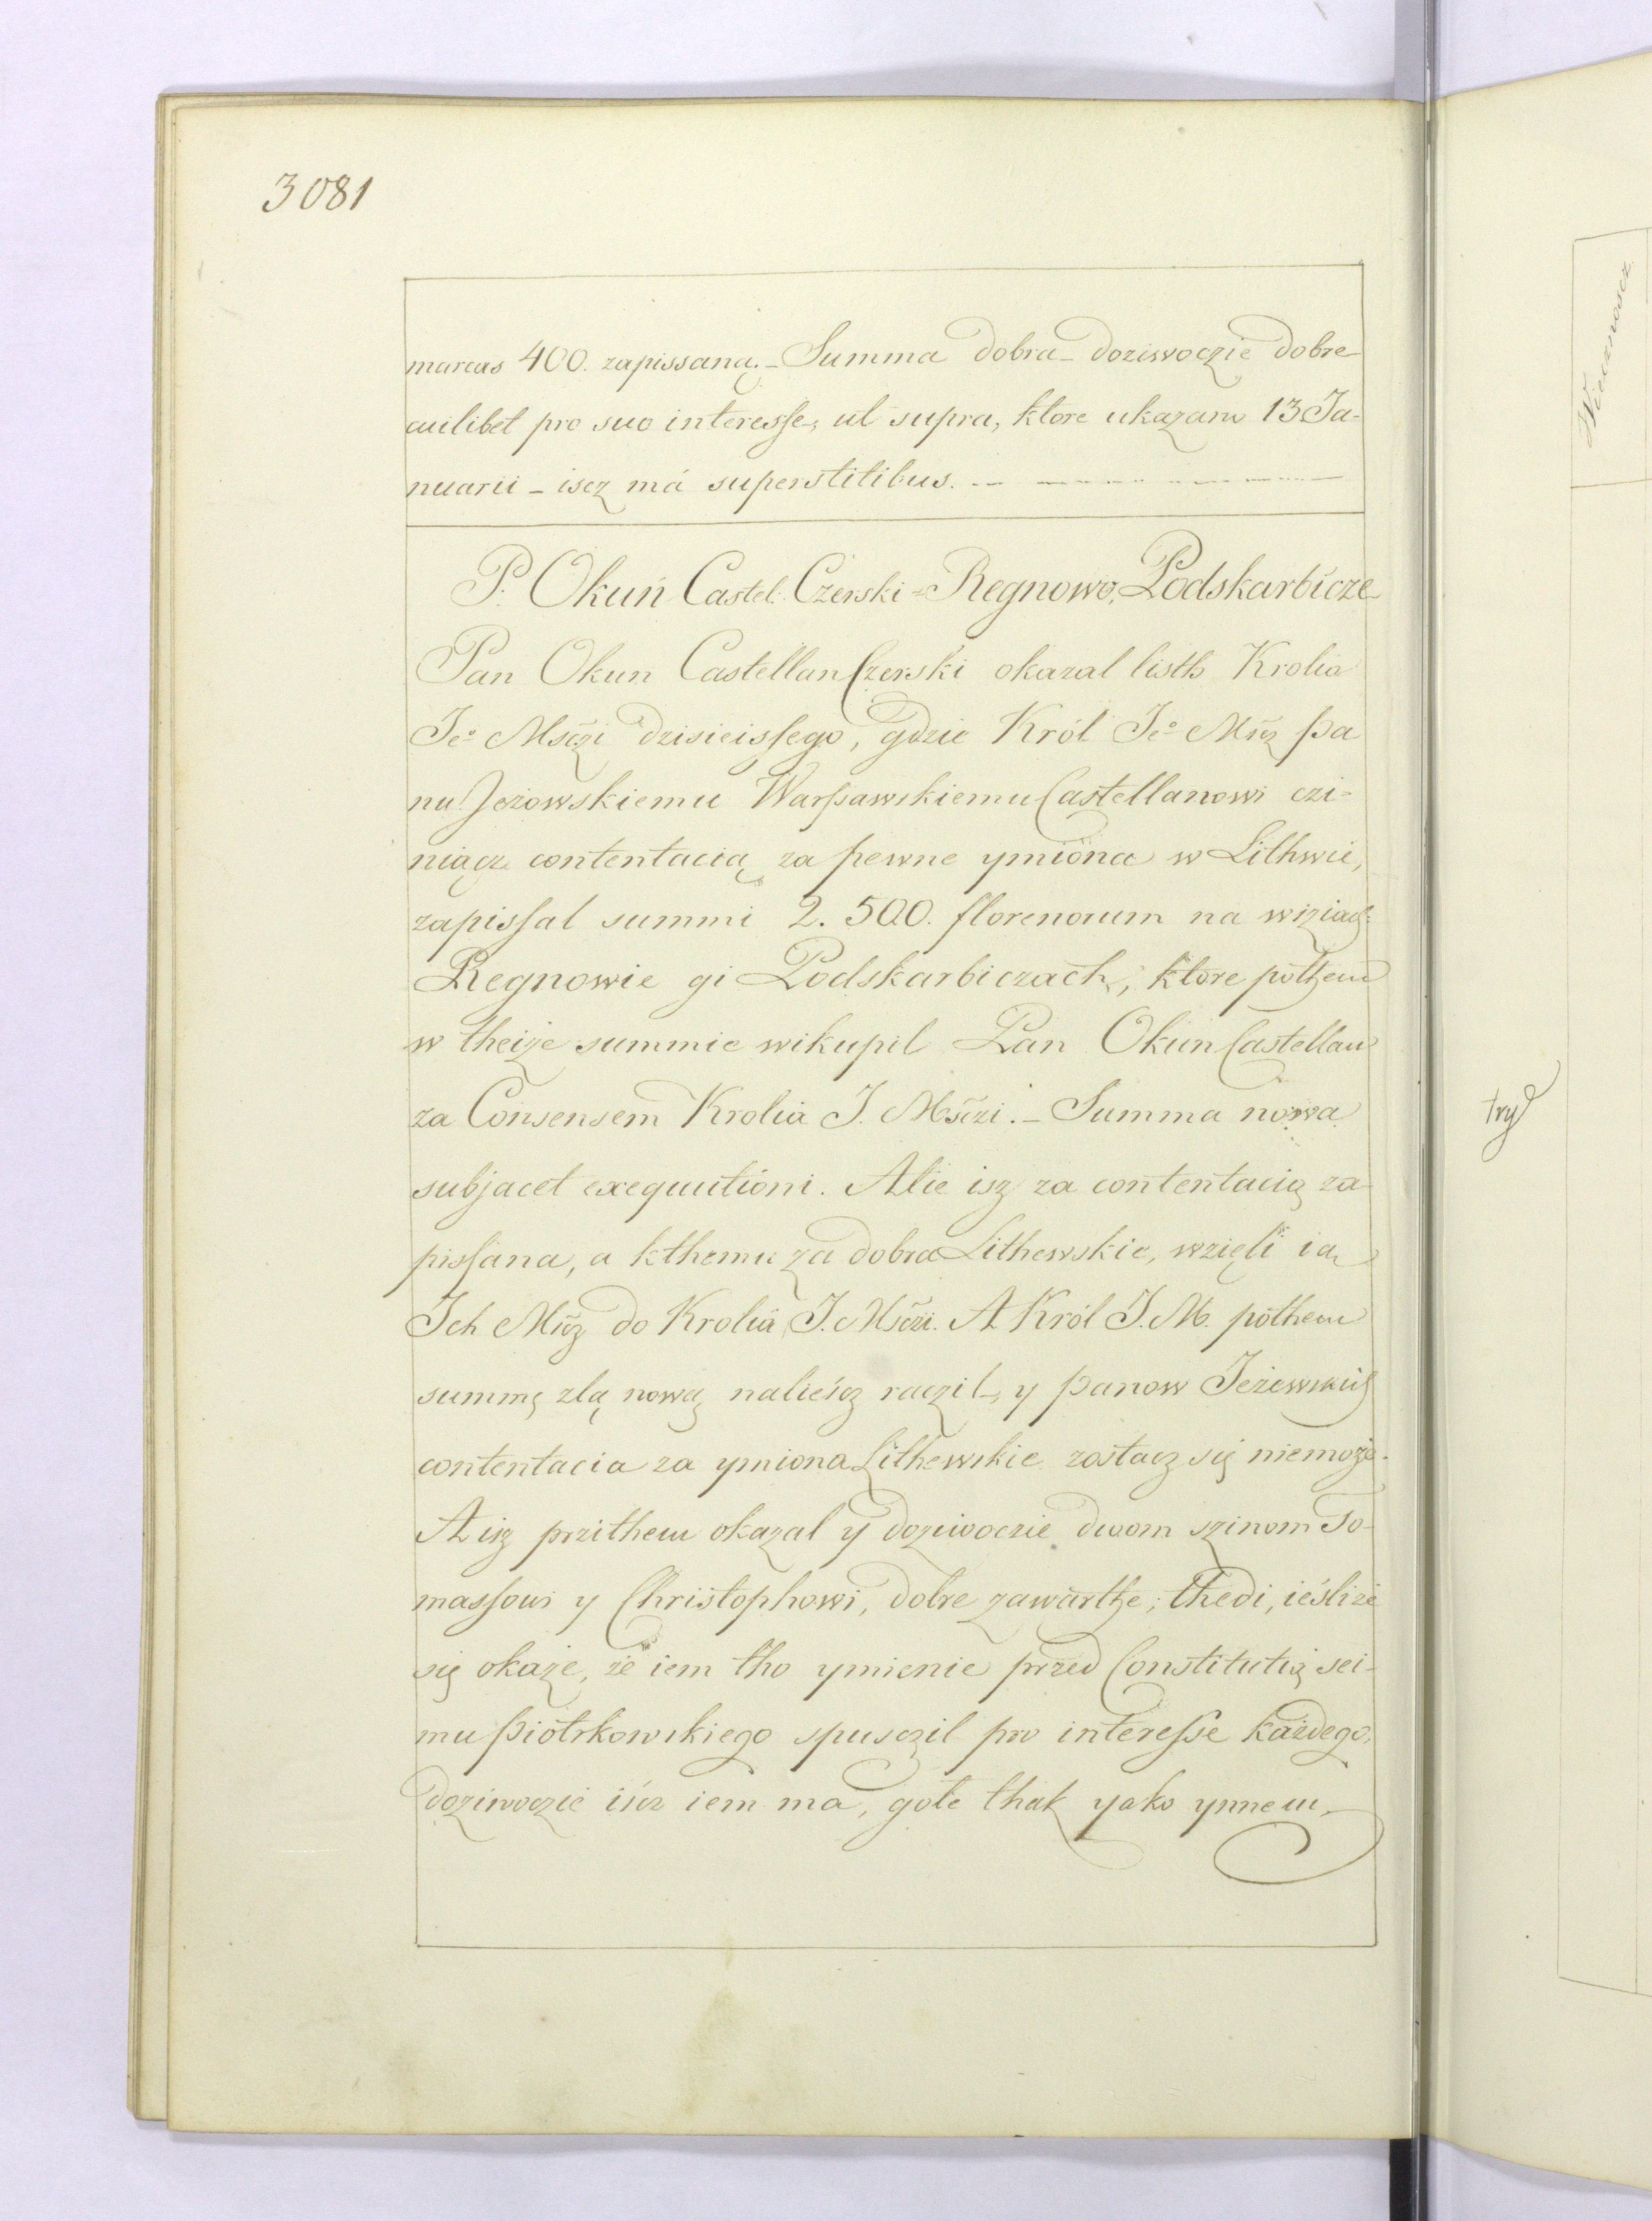 3081
marcas 400. zapissaną. _ Summa dobra _ doziwoczie dobre
cuilibet pro suo interesse, ut supra, ktore ukazane 13 Ja-
nuarii _ iscz má superstitibus.
P. Okuń Castel. Czerski = Regnowo, Podskarbicze
Pan Okun Castellan Czerski okazal listh Krolia
Jeo Msczi dzisieissego, gdzie Król Jeo Mscz pa
nu Jezowskiemu Warssawskiemu Castellanowi czi-
niącz contentacią za pewne ymiona w Lithwie,
zapissal summi 2.500. florenorum na wsziach
Regnowie gi Podskarbiczach, ktore pothem
w theize summie wikupil Pan Okun Castellan
za Consensem Krolia J. Msczi. _ Summa nowa
subjacet exequutioni. Alie isz za contentacią za
pissana, a kthemu za dobra Lithewskie, wzięli ią
Ich Mscz do Krolia J. Msczi. A Król J. M. pothem
summę zlą nową naliescz raczil, y panow Jeżewskich
contentacia za ymiona Lithewskie zostacz się niemoże.
A isz przithem okazal y doziwoczie dwom szinom To-
massowi y Christophowi, dobre zawarthe; thedi, ieślize
się okaże, że iem tho ymienie przed Constitutią sei-
mu Piotrkowskiego spusczil pro interesse każdego,
doziwoczie iscz iem ma, gole thak yako ynnem.
Wiecznoscz
try